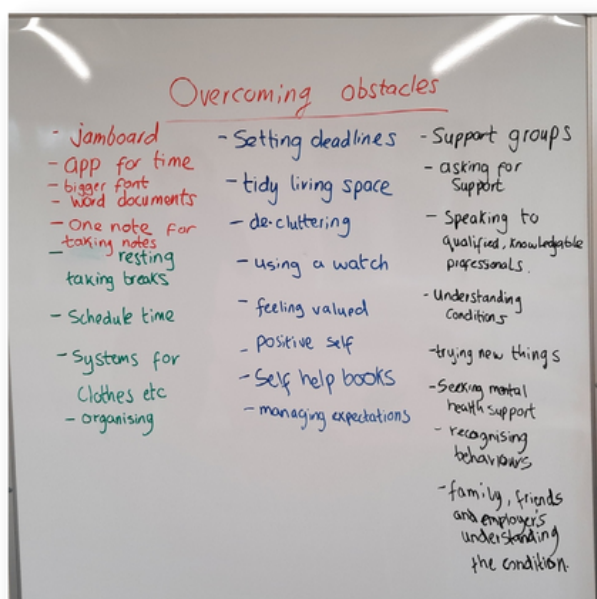 Overcoming obstacles
- jamboard
- app for time
- bigger font
- word documents
- One note for
taking notes
- resting
taking breaks
- Schedule time
- Systems for
Clothes etc
- organising
- Setting deadlines
- tidy living space
- de-cluttering
- using a watch
- feeling valued
- positive self
- Self help books
- managing expectations
- Support groups
- asking for
Support
- Speaking to
qualified, knowledgable
professionals.
- Understanding
Conditions
- trying new things
- Seeking mental
health support
- recognising
behaviours
- family, friends
and employer's
understanding
the condition.